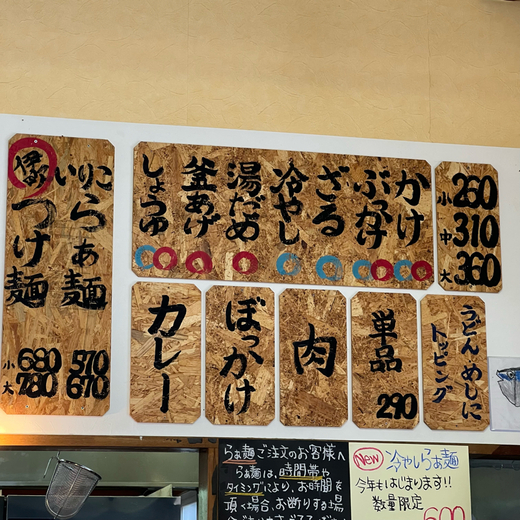 かけ
ぶっかけ
ざる
冷やし
湯だめ
釜あげ
しょうゆ
小 260
中 310
大 360
いりこらぁ麺
570
670
伊吹
つけ麺
小 680
大 780
うどん・めしに
トッピング
単品
290
肉
ぼっかけ
カレー
らぁ麺ご注文のお客様へ
らぁ麺は、時間帯や
タイミングにより、お時間を
頂く場合、お断りする場
New 冷やしらぁ麺
今年もはじまります!!
数量限定
600